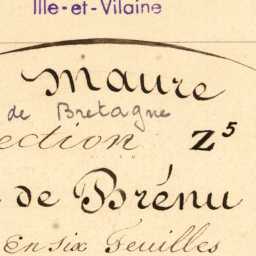 Ille-et-Vilaine
Maure
de Bretagne
ection Z⁵
de Brénu
En six Feuilles